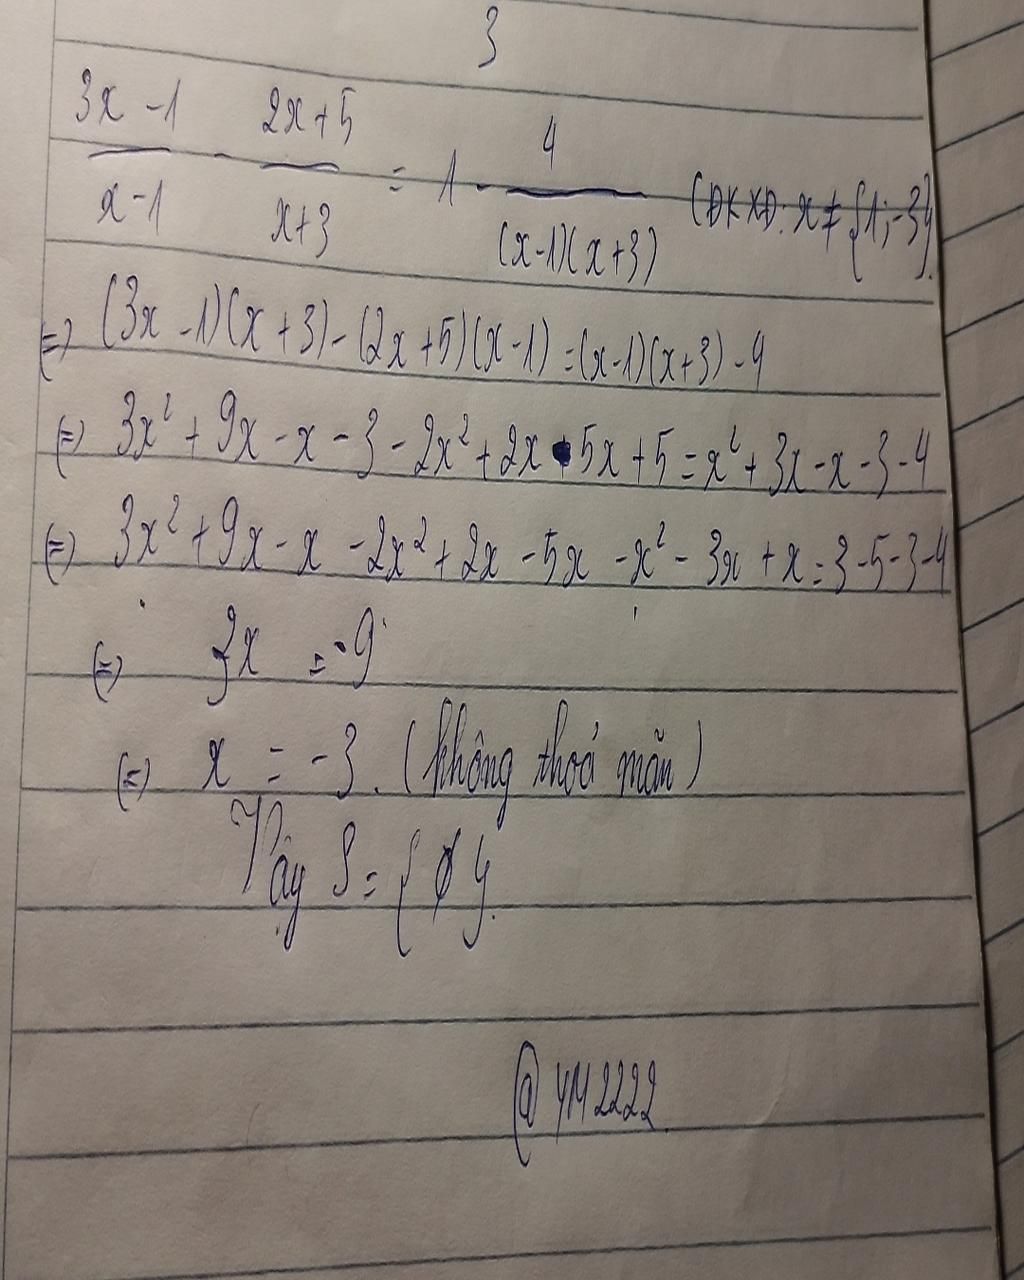 3
3x - 1 / x - 1 - 2x + 5 / x + 3 = 1 - 4 / (x-1)(x+3) (ĐKXĐ: x ≠ {1; -3}.
=) (3x - 1)(x + 3) - (2x + 5)(x - 1) = (x-1)(x+3) - 4
(=) 3x² + 9x - x - 3 - 2x² + 2x - 5x + 5 = x² + 3x - x - 3 - 4
(=) 3x² + 9x - x - 2x² + 2x - 5x - x² - 3x + x = 3 - 5 - 3 - 4
(=) 3x = -9
(=) x = -3. (không thoả mãn)
Vậy S = {∅}.
@YM2222